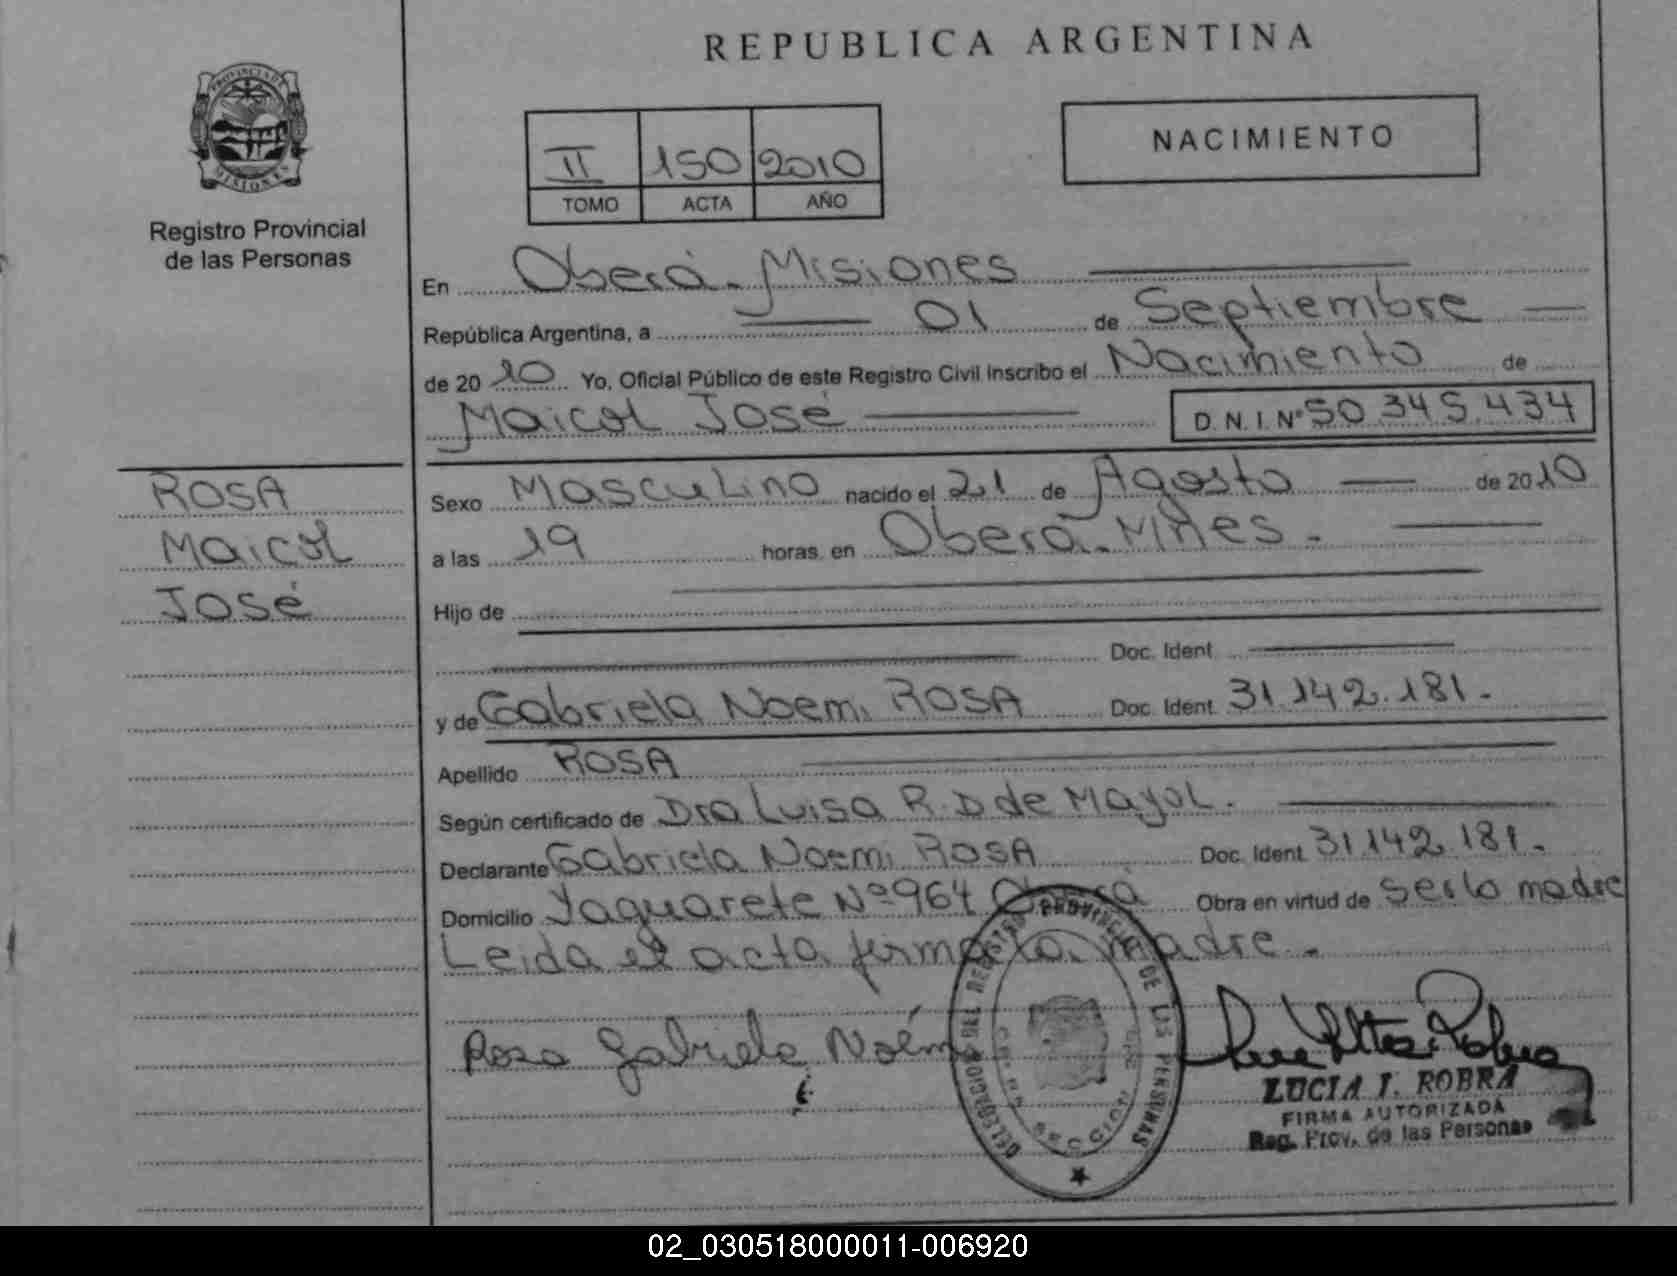 REPUBLICA ARGENTINA
PROVINCIA DE
MISIONES
Registro Provincial
de las Personas
II 150 2010
TOMO ACTA AÑO
NACIMIENTO
En Oberá - Misiones
República Argentina, a 01 de Septiembre
de 2010 Yo, Oficial Público de este Registro Civil Inscribo el Nacimiento de
Maicol José D.N.I. Nº 50.345.434
ROSA
Maicol
José
Sexo Masculino nacido el 21 de Agosto de 2010
a las 19 horas, en Oberá - Mnes.
Hijo de
Doc. Ident
y de Gabriela Noemi ROSA Doc. Ident. 31.142.181.
Apellido ROSA
Según certificado de Dra Luisa R. D de Mayol.
Declarante Gabriela Noemi ROSA Doc. Ident. 31.142.181.
Domicilio Yaguarete Nº 964 Oberá Obra en virtud de ser la madre
Leida el acta firma la madre.
Rosa Gabriela Noémi
DELEGACION DEL REGISTRO PROVINCIAL DE LAS PERSONAS
SECCION
LUCIA I. ROBRA
FIRMA AUTORIZADA
Reg. Prov. de las Personas
02_030518000011-006920